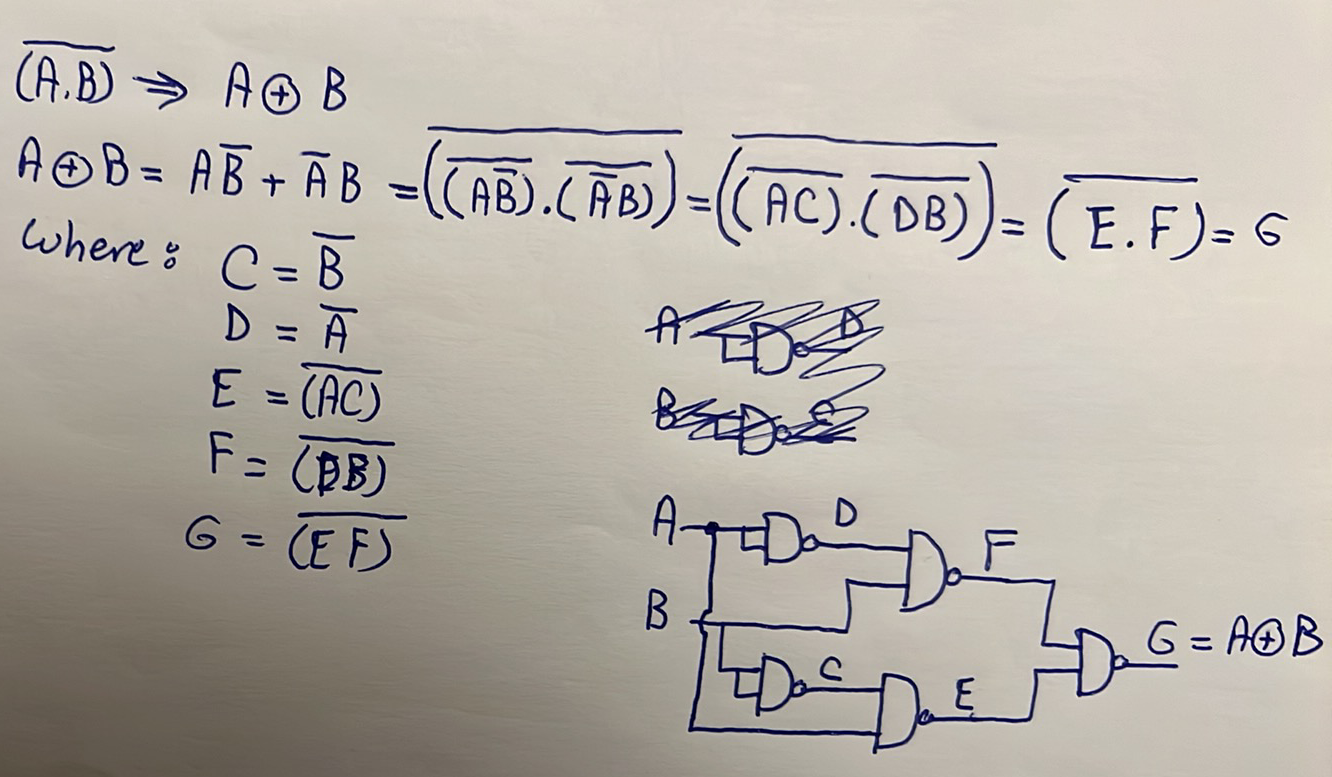 $\overline{(A.B)} \Rightarrow A \oplus B$
$A \oplus B = A\overline{B} + \overline{A}B = \overline{(\overline{(A\overline{B})}.\overline{(\overline{A}B)})} = \overline{(\overline{(AC)}.\overline{(DB)})} = \overline{(E.F)} = G$
Where: $C = \overline{B}$
$D = \overline{A}$
$E = \overline{(AC)}$
$F = \overline{(DB)}$
$G = \overline{(EF)}$
A D
B C
A D F
B
G = A⊕B
C E